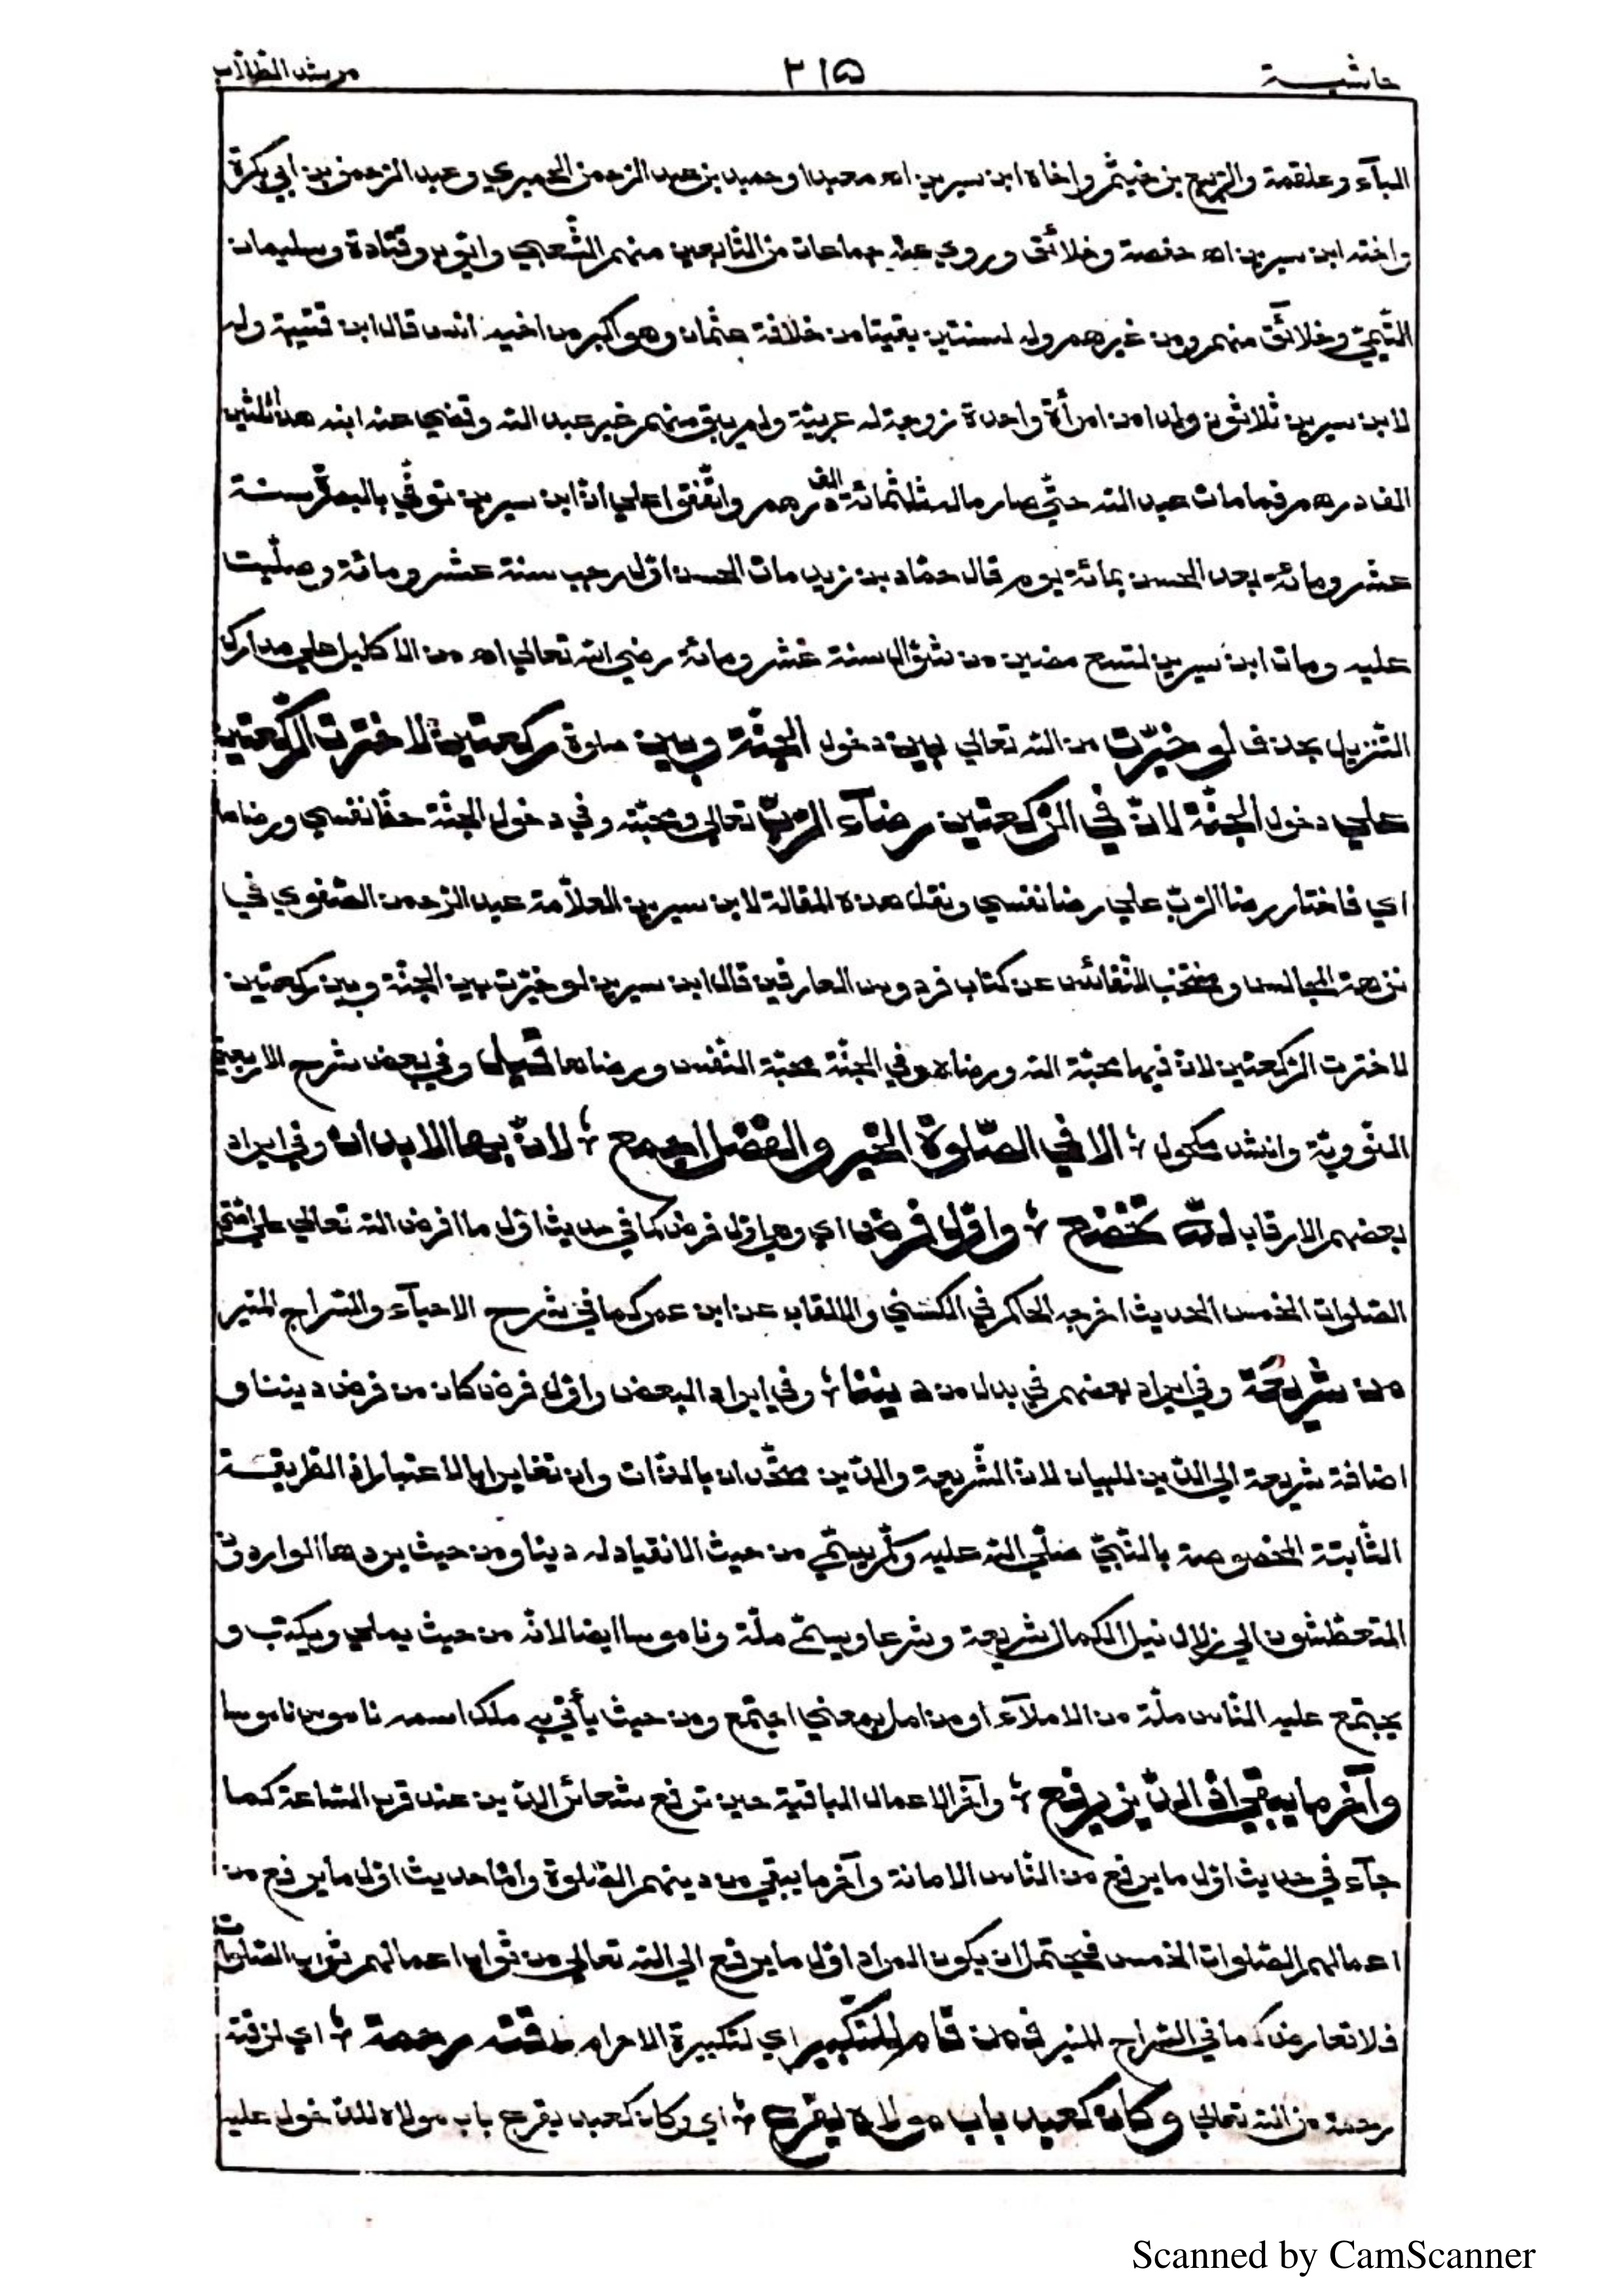 حاشية ٢١٥ مرشد الطلاب
البآء وعلقمة والربيع بن خيثم واخاه ابن سيرين اه معبدا وحميد بن عبد الرحمن الحميري وعبد الرحمن بن ابي بكرة
واخته ابن سيرين اه حفصة وخلائق وروي عنه جماعات من التابعين منهم الشعبي وايوب وقتادة وسليمان
التيمي وخلائق منهم ومن غيرهم ولد لسنتين بقيتا من خلافة عثمان وهو اكبر من اخيه انس قال ابن قتيبة ولد
لابن سيرين ثلاثون ولدا من امرأة واحدة زوجة له عربية ولم يبق منهم غير عبد الله وقضي عنه ابنه هذا ثلثين
الف درهم فما مات عبد الله حتي صار ماله ثلثمائة الف درهم واتفقوا علي ان ابن سيرين توفي بالبصرة سنة
عشر ومائة بعد الحسن بمائة يوم قال حماد بن زيد مات الحسن اول رجب سنة عشر ومائة وصليت
عليه ومات ابن سيرين لتسع مضين من شوال سنة عشر ومائة رضي الله تعالي اه من الاكليل علي مدارك
التنزيل بحذف لو خيرت من الله تعالي بين دخول الجنة وبين صلوة ركعتين لاخترت الركعتين
علي دخول الجنة لان في الركعتين رضآء الرب تعالي ومحبته وفي دخول الجنة حظ نفسي ورضاها
اي فاختار رضا الرب علي رضا نفسي ونقل هذه المقالة لابن سيرين العلامة عبد الرحمن الصفوري في
نزهة المجالس ومنتخب النفائس عن كتاب فردوس العارفين قال ابن سيرين لو خيرت بين الجنة وبين ركعتين
لاخترت الركعتين لان فيهما محبة الله ورضاه وفي الجنة محبة النفس ورضاها قيل وفي بعض شرح الاربعين
النووية وانشد مكحول ؛ الا في الصلوة الخير والفضل اجمع ؛ لان بها الابدان وفي ايراد
بعضهم الارقاب لله تخضع ؛ واول فرض اي وهي اول فرض كما في حديث اول ما افرض الله تعالي علي امتي
الصلوات الخمس الحديث اخرجه الحاكم في الكني والالقاب عن ابن عمر كما في شرح الاحيآء والسراج المنير
من شريعة وفي ايراد بعضهم في بدل من ديننا ؛ وفي ايراد البعض واول فرض كان من فرض ديننا و
اضافة شريعة الي الدين للبيان لان الشريعة والدين متحدان بالذات وان تغايرا بالاعتبار اذ الطريقة
الثابتة المخصوصة بالنبي صلي الله عليه وسلم يسمي من حيث الانقياد له دينا ومن حيث يردها الواردون
المتعطشون الي زلال نيل الكمال شريعة وشرعا ويسمي ملة وناموسا ايضا لانه من حيث يملي ويكتب و
يجتمع عليه الناس ملة من الاملآء او من امل بمعني اجتمع ومن حيث يأتي به ملك اسمه ناموس ناموسا
وآخر ما يبقي اذ الدين يرفع ؛ وآخر الاعمال الباقية حين ترفع شعائر الدين عند قرب الساعة كما
جآء في حديث اول ما يرفع من الناس الامانة وآخر ما يبقي من دينهم الصلوة واما حديث اول ما يرفع من
اعمالهم الصلوات الخمس فيحتمل ان يكون المراد اول ما يرفع الي الله تعالي من ثواب اعمالهم ثواب الصلوات
فلا تعارض كما في السراج المنير فمن قام للتكبير اي لتكبيرة الاحرام لاقته رحمة ؛ اي لزقته
رحمة من الله تعالي وكان كعبد باب مولاه يقرع ؛ اي وكان كعبد يقرع باب مولاه للدخول عليه
Scanned by CamScanner